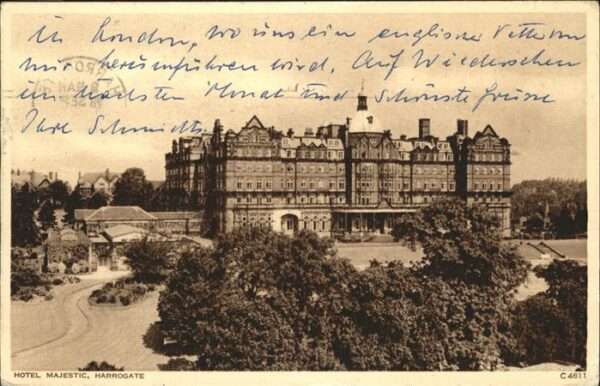 in London, wo uns ein englischer Vetter
nur herumführen wird. Auf Wiedersehen
im nächsten Monat und schönste Grüsse
Ihre Schmidts
HOTEL MAJESTIC, HARROGATE
C 4611